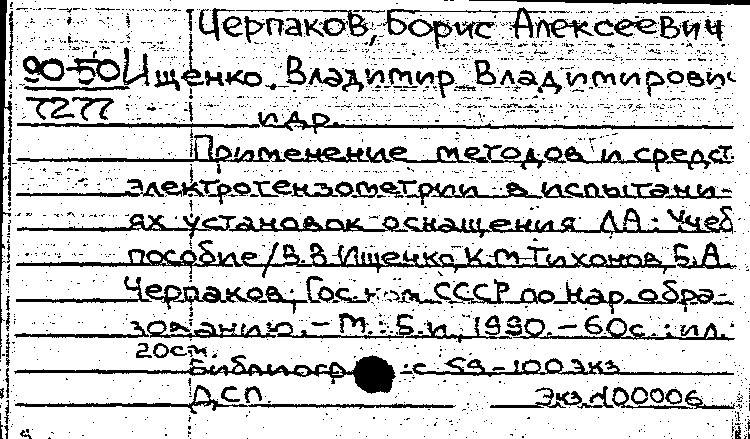 Черпаков, Борис Алексеевич
90-50 Ищенко, Владимир Владимирович
7277 и др.
Применение методов и средст
электротензометрии в испытани-
ях установок оснащения ЛА: Учеб
пособие/В.В.Ищенко, К.М.Тихонов, Б.А.
Черпаков; Гос. ком. СССР по нар. обра-
зованию. - М.: Б.и., 1990. - 60с.: ил.
20см.
Библиогр : с 59 - 100 экз
ДСП. Экз.N00006